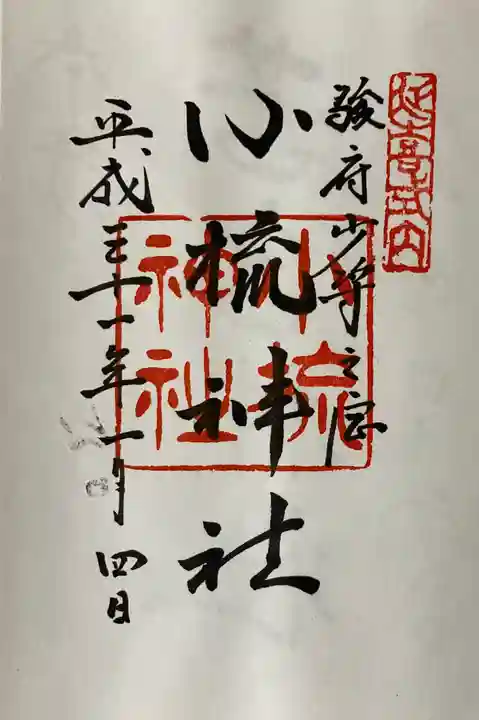 延喜式内
駿府少将之宮
小梳神社
小梳
神社
平成三十一年一月四日